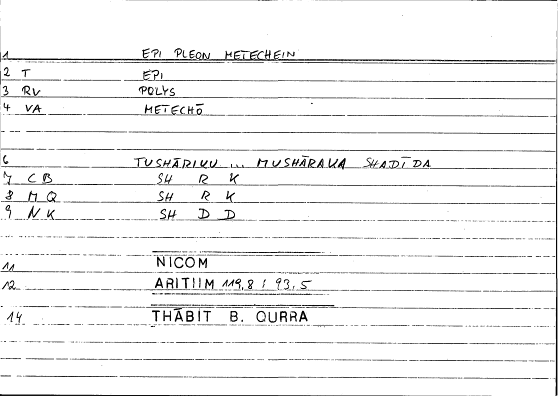 1 EPI PLEON METECHEIN
2 T EPI
3 RV POLYS
4 VA METECHŌ
6 TUSHĀRIKU ... MUSHĀRAKA SHADĪDA
7 CB SH R K
8 MQ SH R K
9 NK SH D D
11 NICOM
12 ARITIIM 119,8 : 93,5
14 THĀBIT B. QURRA